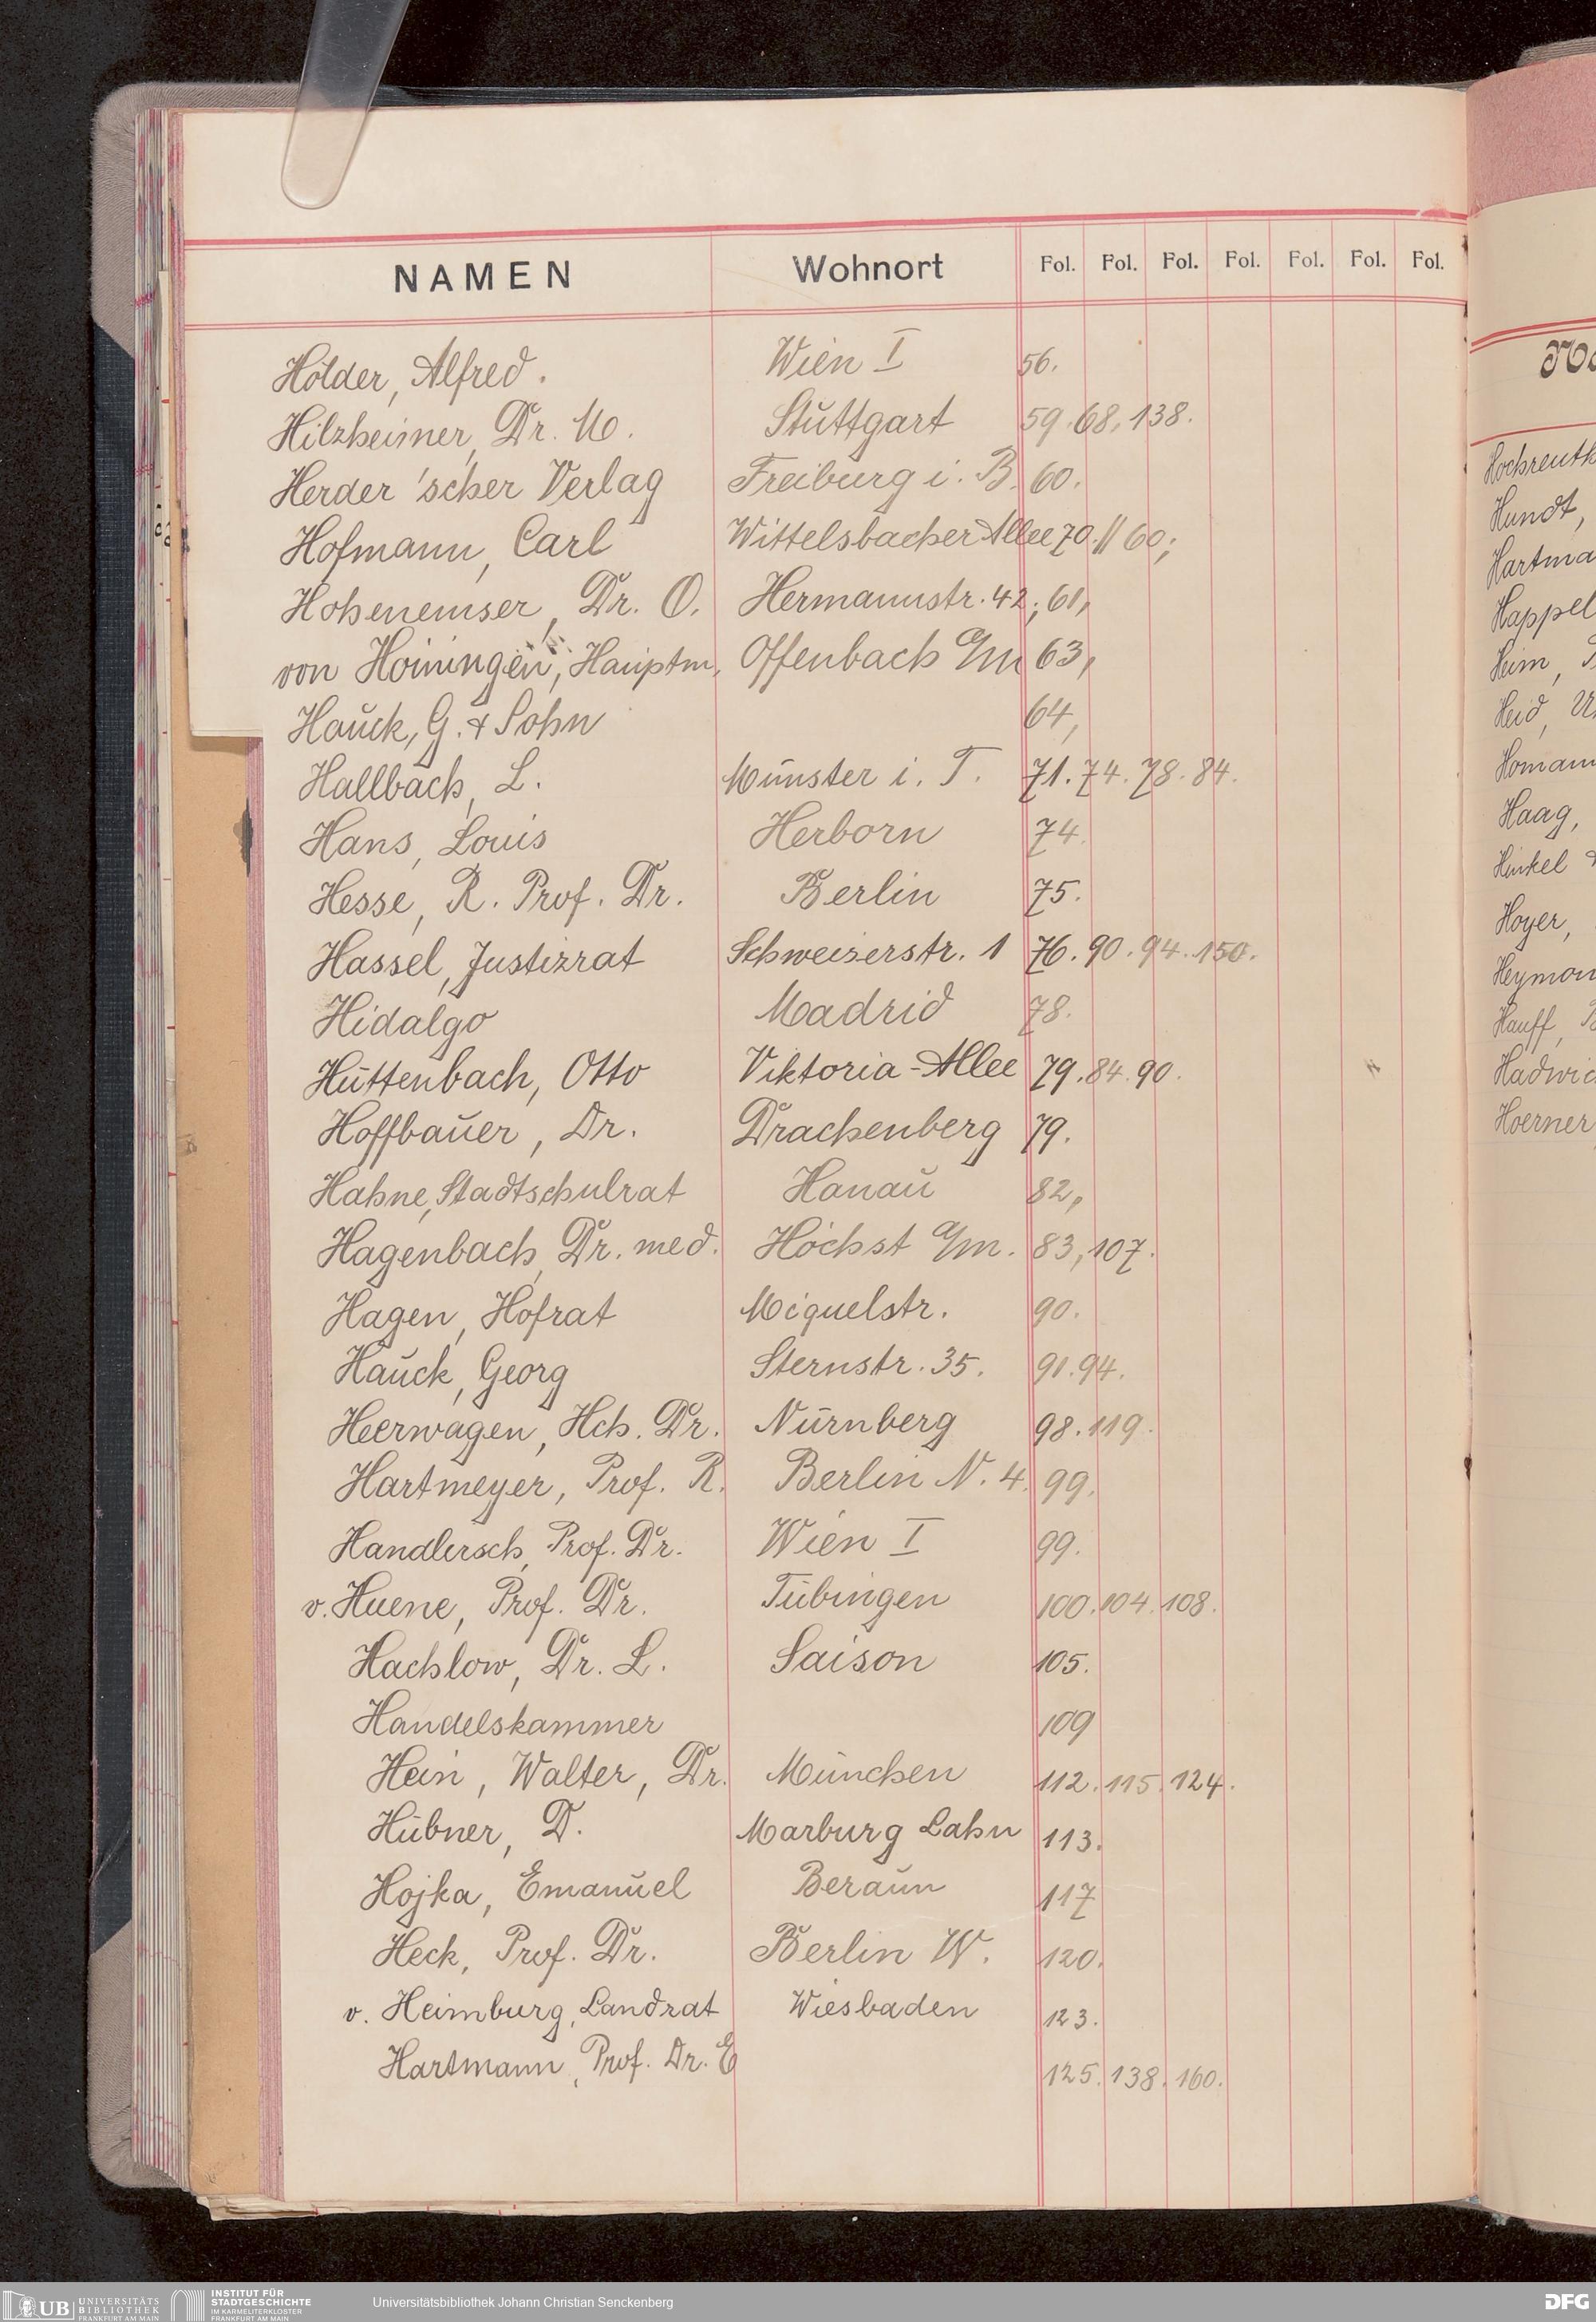 NAMEN Wohnort Fol. Fol. Fol. Fol. Fol. Fol. Fol.
Hölder, Alfred. Wien I 56.
Hilzheimer, Dr. M. Stuttgart 59. 68. 138.
Herder'scher Verlag Freiburg i. B. 60.
Hofmann, Carl Wittelsbacher Allee 70. // 60;
Hohenemser, Dr. O. Hermannstr. 42; 61,
von Hoiningen, Hauptm, Offenbach a/m 63,
Hauck, G. & Sohn 64,
Hallbach, L. Münster i. T. 71. 74. 78. 84.
Hans, Louis Herborn 74.
Hesse, R. Prof. Dr. Berlin 75.
Hassel, Justizrat Schweizerstr. 1 76. 90. 94. 150.
Hidalgo Madrid 78.
Hüttenbach, Otto Viktoria-Allee 79. 84. 90.
Hoffbauer, Dr. Drachenberg 79.
Hahne, Stadtschulrat Hanau 82,
Hagenbach, Dr. med. Höchst a/m. 83, 107.
Hagen, Hofrat Miquelstr. 90.
Hauck, Georg Sternstr. 35. 91. 94.
Heerwagen, Hch. Dr. Nürnberg 98. 119.
Hartmeyer, Prof. R. Berlin N. 4. 99.
Handlirsch, Prof. Dr. Wien I 99.
v. Huene, Prof. Dr. Tübingen 100. 104. 108.
Hachlow, Dr. L. Saison 105.
Handelskammer 109
Hein, Walter, Dr. München 112. 115. 124.
Hübner, D. Marburg Lahn 113.
Hojka, Emanuel Beraun 117
Heck, Prof. Dr. Berlin W. 120.
v. Heimburg, Landrat Wiesbaden 123.
Hartmann, Prof. Dr. E 125. 138. 160.
Hundt,
Heim,
Heid,
Haag,
Hinkel
Hoyer,
Hauff,
UB UNIVERSITÄTS BIBLIOTHEK FRANKFURT AM MAIN
INSTITUT FÜR STADTGESCHICHTE IM KARMELITERKLOSTER FRANKFURT AM MAIN
Universitätsbibliothek Johann Christian Senckenberg
DFG